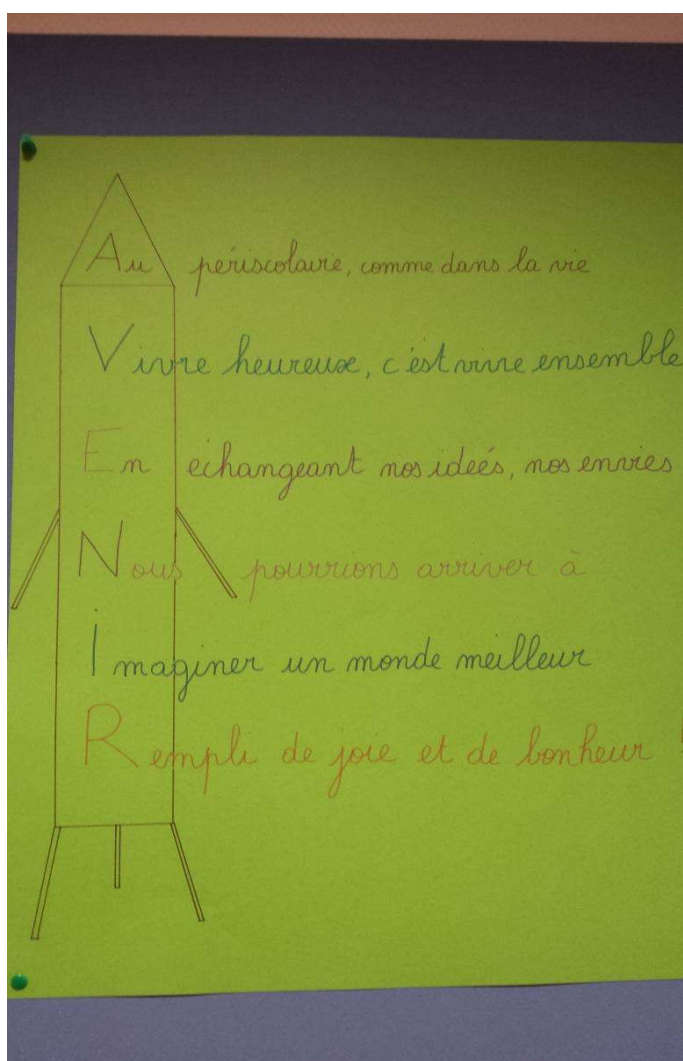 Au périscolaire, comme dans la vie
Vivre heureux, c'est vivre ensemble
En echangeant nos ideés, nos envies
Nous pourrions arriver à
Imaginer un monde meilleur
Rempli de joie et de bonheur !